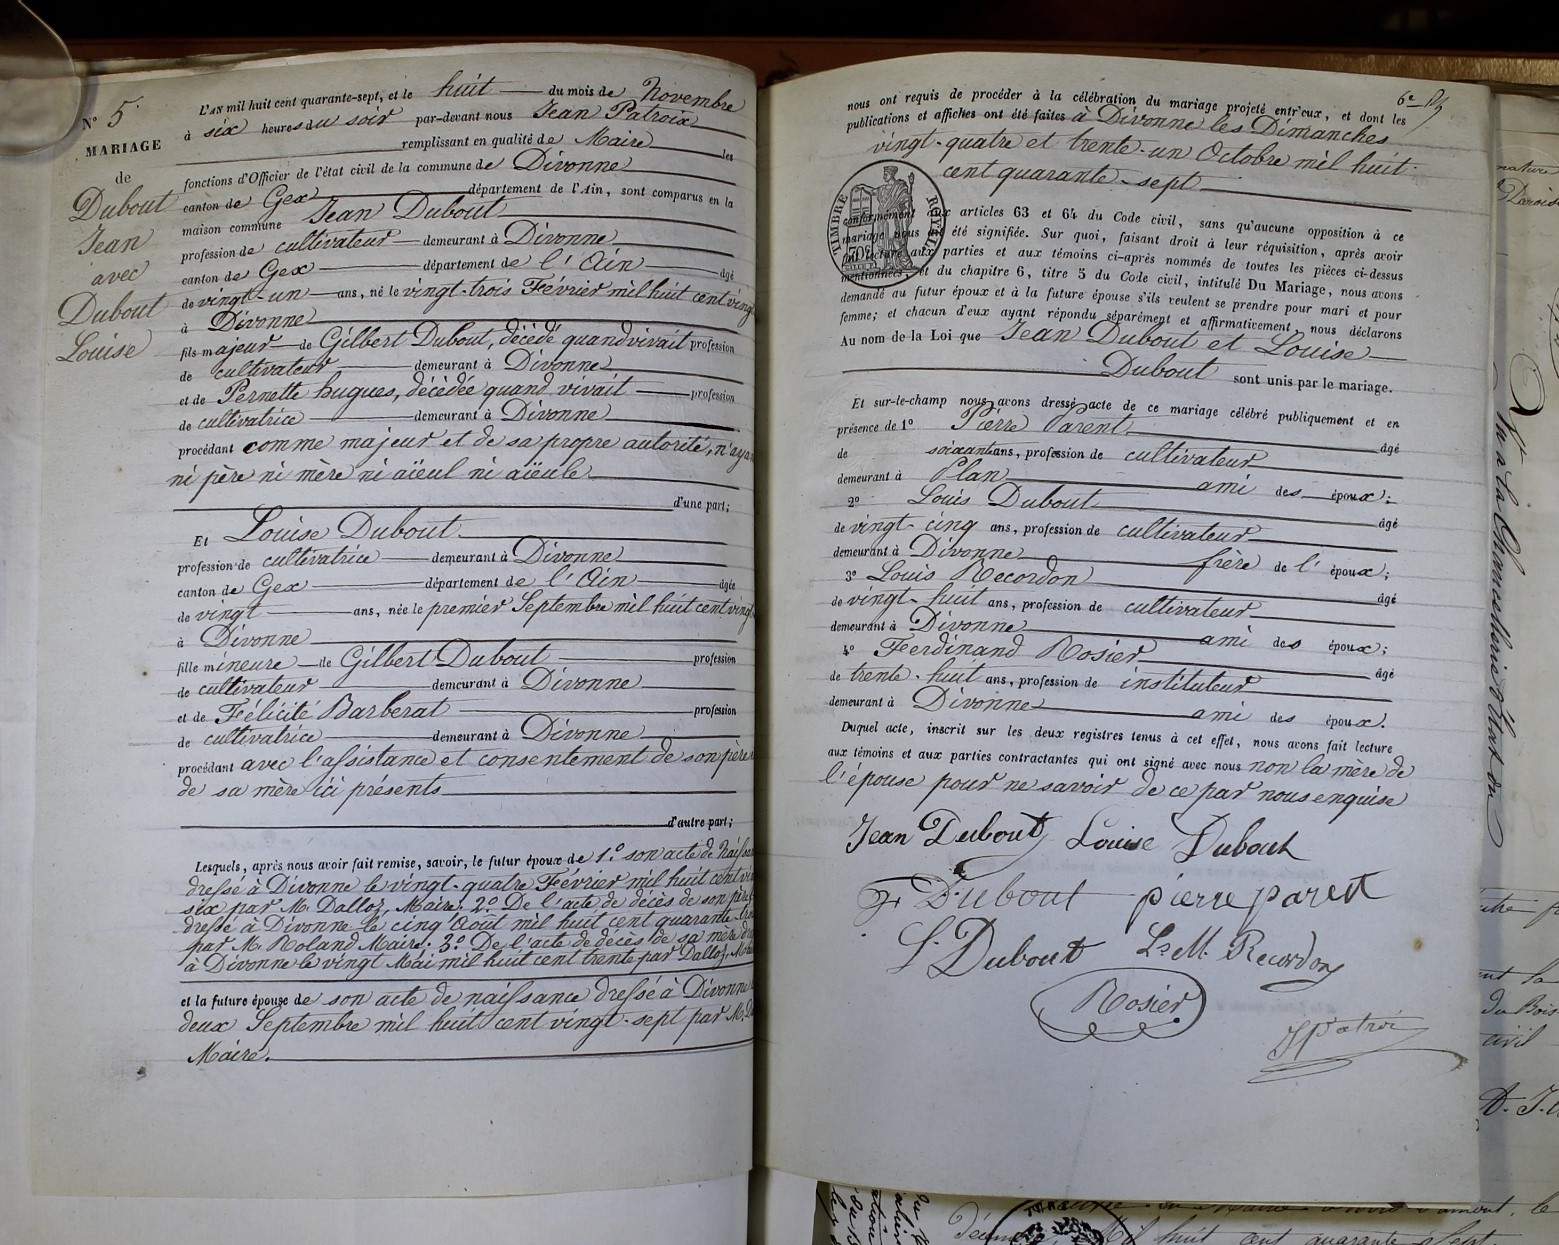 N° 5.
MARIAGE
de
Dubout
Jean
avec
Dubout
Louise
L'AN mil huit cent quarante-sept, et le huit du mois de Novembre
à six heures du soir par-devant nous Jean Patroix
remplissant en qualité de Maire les
fonctions d'Officier de l'état civil de la commune de Divonne
canton de Gex département de l'Ain, sont comparus en la
maison commune Jean Dubout
profession de cultivateur demeurant à Divonne
canton de Gex département de l'Ain âgé
de vingt-un ans, né le vingt-trois Février mil huit cent vingt
à Divonne
fils majeur de Gilbert Dubout, décédé quand vivait profession
de cultivateur demeurant à Divonne
et de Pernette hugues, décédée quand vivait profession
de cultivatrice demeurant à Divonne
procédant comme majeur et de sa propre autorité, n'ayan
ni père ni mère ni aïeul ni aïeule
d'une part;
Et Louise Dubout
profession de cultivatrice demeurant à Divonne
canton de Gex département de l'Ain âgée
de vingt ans, née le premier Septembre mil huit cent vingt
à Divonne
fille mineure de Gilbert Dubout profession
de cultivateur demeurant à Divonne
et de Félicité Barberat profession
de cultivatrice demeurant à Divonne
procédant avec l'assistance et consentement de son père
de sa mère ici présents
d'autre part;
Lesquels, après nous avoir fait remise, savoir, le futur époux de 1.° son acte de Naissan
dressé à Divonne le vingt-quatre Février mil huit cent vin
six par M. Dalloz, Maire; 2.° De l'acte de décès de son père
dressé à Divonne le cinq Août mil huit cent quarante-tro
par M. Roland Maire; 3.° De l'acte de décès de sa mère d
à Divonne le vingt Mai mil huit cent trente par Dalloz, M
et la future épouse de son acte de naissance dressé à Divonne
deux Septembre mil huit cent vingt-sept par M. D
Maire.
6e
nous ont requis de procéder à la célébration du mariage projeté entr'eux, et dont les
publications et affiches ont été faites à Divonne les Dimanches
vingt-quatre et trente-un Octobre mil huit
cent quarante-sept
TIMBRE ROYAL
conformément aux articles 63 et 64 du Code civil, sans qu'aucune opposition à ce
mariage nous ait été signifiée. Sur quoi, faisant droit à leur réquisition, après avoir
fait lecture aux parties et aux témoins ci-après nommés de toutes les pièces ci-dessus
mentionnées, et du chapitre 6, titre 5 du Code civil, intitulé Du Mariage, nous avons
demandé au futur époux et à la future épouse s'ils veulent se prendre pour mari et pour
femme; et chacun d'eux ayant répondu séparément et affirmativement, nous déclarons
Au nom de la Loi que Jean Dubout et Louise
Dubout sont unis par le mariage.
Et sur-le-champ nous avons dressé acte de ce mariage célébré publiquement et en
présence de 1° Pierre Parent âgé
de soixante ans, profession de cultivateur
demeurant à Plan ami des époux;
2° Louis Dubout âgé
de vingt-cinq ans, profession de cultivateur
demeurant à Divonne frère de l'époux;
3° Louis Recordon âgé
de vingt-huit ans, profession de cultivateur
demeurant à Divonne ami des époux;
4° Ferdinand Rosier âgé
de trente-huit ans, profession de instituteur
demeurant à Divonne ami des époux.
Duquel acte, inscrit sur les deux registres tenus à cet effet, nous avons fait lecture
aux témoins et aux parties contractantes qui ont signé avec nous non la mère de
l'épouse pour ne savoir de ce par nous enquise
Jean Dubout Louise Dubout
Dubout pierre parent
L. Dubout Ls. M. Recordon
Rosier
JPatroix